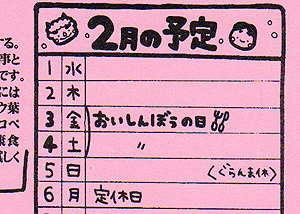 する。
事と
です。
には
ウ葉
コペ
東食
しく
2月の予定
1 水
2 木
3 金 おいしんぼうの日
4 土 〃
5 日 〈ぐらんま休〉
6 月 定休日